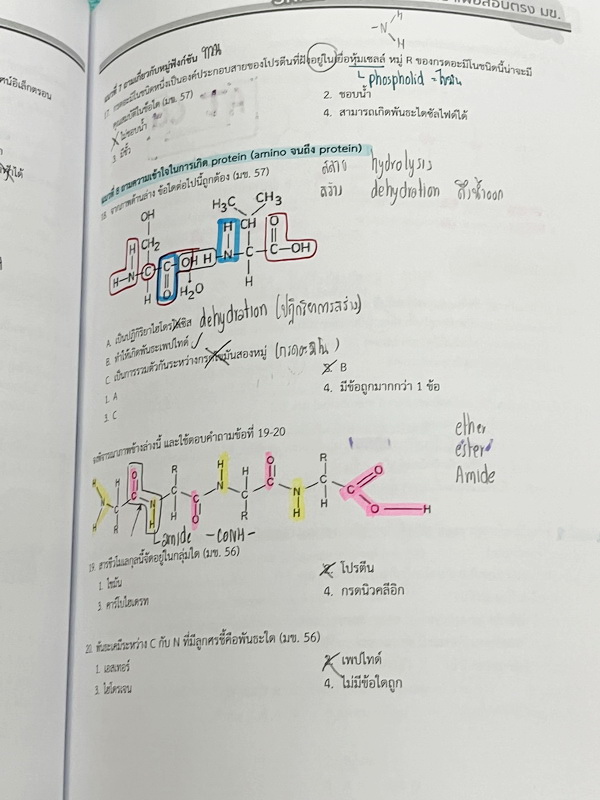 เพื่อสอบตรง มข.
N
H
H
แนวที่ 7 ถามเกี่ยวกับหมู่ฟังก์ชัน
17. กรดอะมิโนชนิดหนึ่งเป็นองค์ประกอบสายของโปรตีนที่ฝังอยู่ในเยื่อหุ้มเซลล์ หมู่ R ของกรดอะมิโนชนิดนี้น่าจะมี
คุณสมบัติในข้อใด (มข. 57)
phospholid = ไขมัน
1. ไม่ชอบน้ำ
2. ชอบน้ำ
3. มีขั้ว
4. สามารถเกิดพันธะไดซัลไฟด์ได้
แนวที่ 8 ถามความเข้าใจในการเกิด protein (amino จนถึง protein)
สลาย hydrolysis
18. จากภาพด้านล่าง ข้อใดต่อไปนี้ถูกต้อง (มข. 57)
สร้าง dehydration ดึงน้ำออก
H₃C CH₃
OH H CH O
H CH₂
H N C C OH H N C C OH
H O H
H₂O
A. เป็นปฏิกิริยาไฮโดรไลซิส dehydration (ปฏิกิริยาการสร้าง)
B. ทำให้เกิดพันธะเพปไทด์ ✓
C. เป็นการรวมตัวกันระหว่างกรดไขมันสองหมู่ (กรดอะมิโน)
1. A
2. B
3. C
4. มีข้อถูกมากกว่า 1 ข้อ
ether
ester
Amide
จงพิจารณาภาพข้างล่างนี้ และใช้ตอบคำถามข้อที่ 19-20
H H O R H H O R O
N C C N C C N C C N C C O H
H R H H O R H H
amide -CONH-
19. สารชีวโมเลกุลนี้จัดอยู่ในกลุ่มใด (มข. 56)
1. ไขมัน
2. โปรตีน
3. คาร์โบไฮเดรท
4. กรดนิวคลีอิก
20. พันธะเคมีระหว่าง C กับ N ที่มีลูกศรชี้คือพันธะใด (มข. 56)
1. เอสเทอร์
2. เพปไทด์
3. ไฮโดรเจน
4. ไม่มีข้อใดถูก